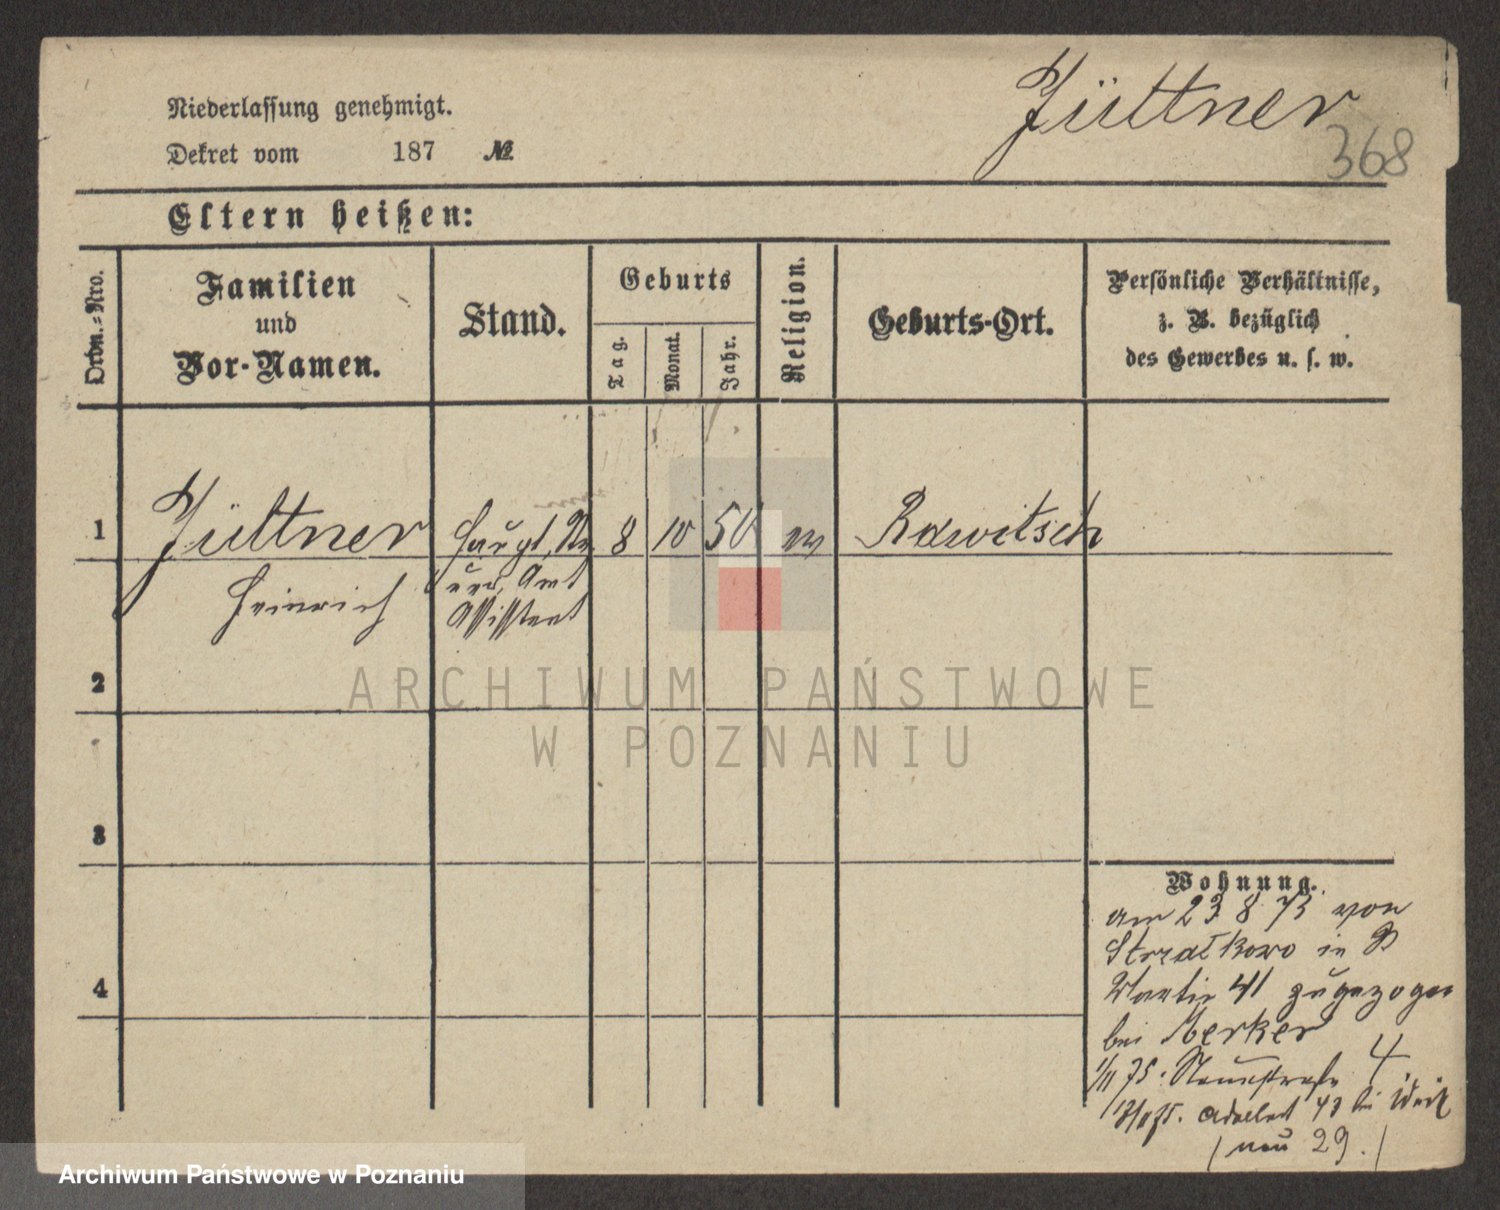 Jüttner
368
Niederlassung genehmigt.
Dekret vom 187 №
Eltern heißen:
Ordn.=Nro.
Familien
und
Vor-Namen.
Stand.
Geburts
Tag.
Monat.
Jahr.
Religion.
Geburts-Ort.
Persönliche Verhältnisse,
z. B. bezüglich
des Gewerbes u. s. w.
1 Jüttner 8 10 50 Rawitsch
Heinrich Amt
Assistent
2
3
4
Wohnung.
am 23 8 73 von
Strzałkowo in
41 zugezogen
bei Merker
1/11 75. 4
43 bei
neu 29.
ARCHIWUM PAŃSTWOWE
W POZNANIU
Archiwum Państwowe w Poznaniu